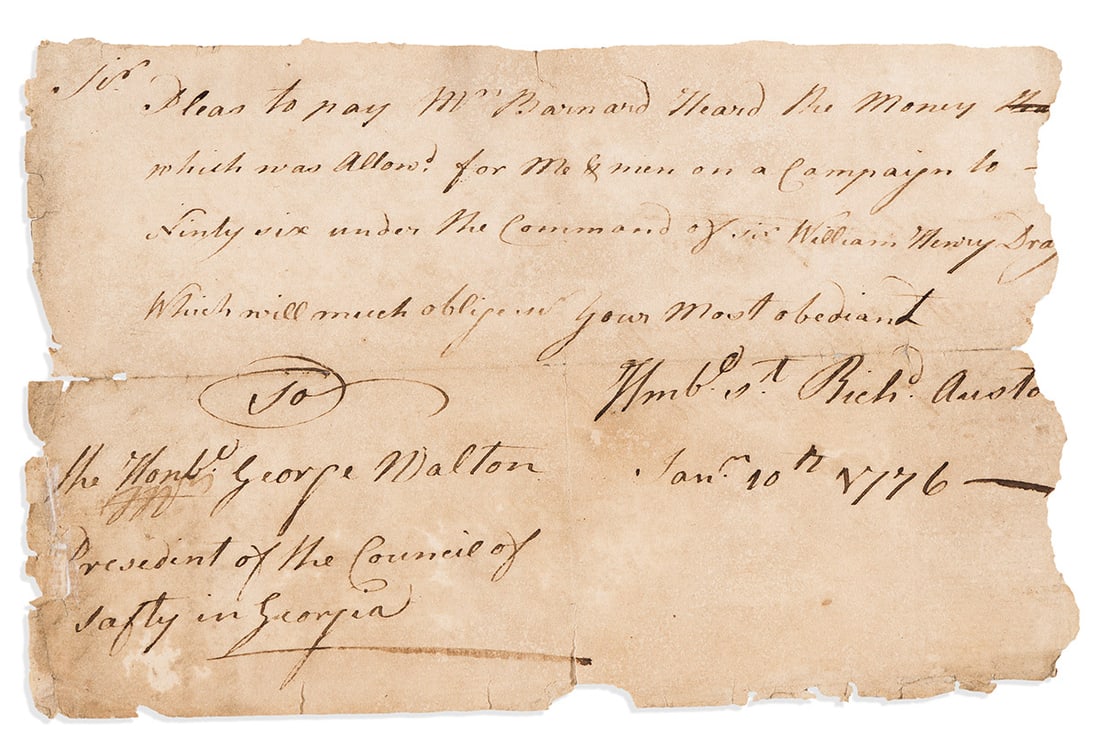 Sir
Pleas to pay Mr Barnard Heard the Money
which was Allowd. for Me & men on a Campaign to –
Ninty six under the Command of sir William Henry Dray
Which will much oblige Your Most obediant
Hmbe. st. Richd. Austo
To
the Honbe. George Walton
Janr. 10th 1776 —
President of the Council of
Safty in Georgia